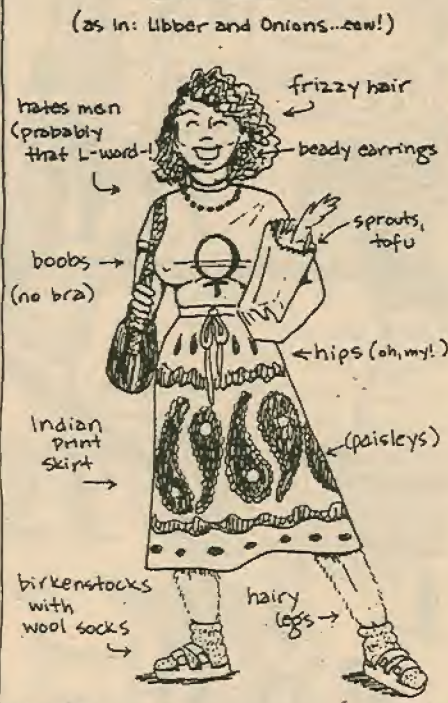 (as in: Libber and Onions...eew!)
frizzy hair
hates men
(probably
that L-word-!
beady earrings
sprouts,
tofu
boobs
(no bra)
hips (oh, my!)
Indian
print
skirt
(paisleys)
birkenstocks
with
wool socks
hairy
legs